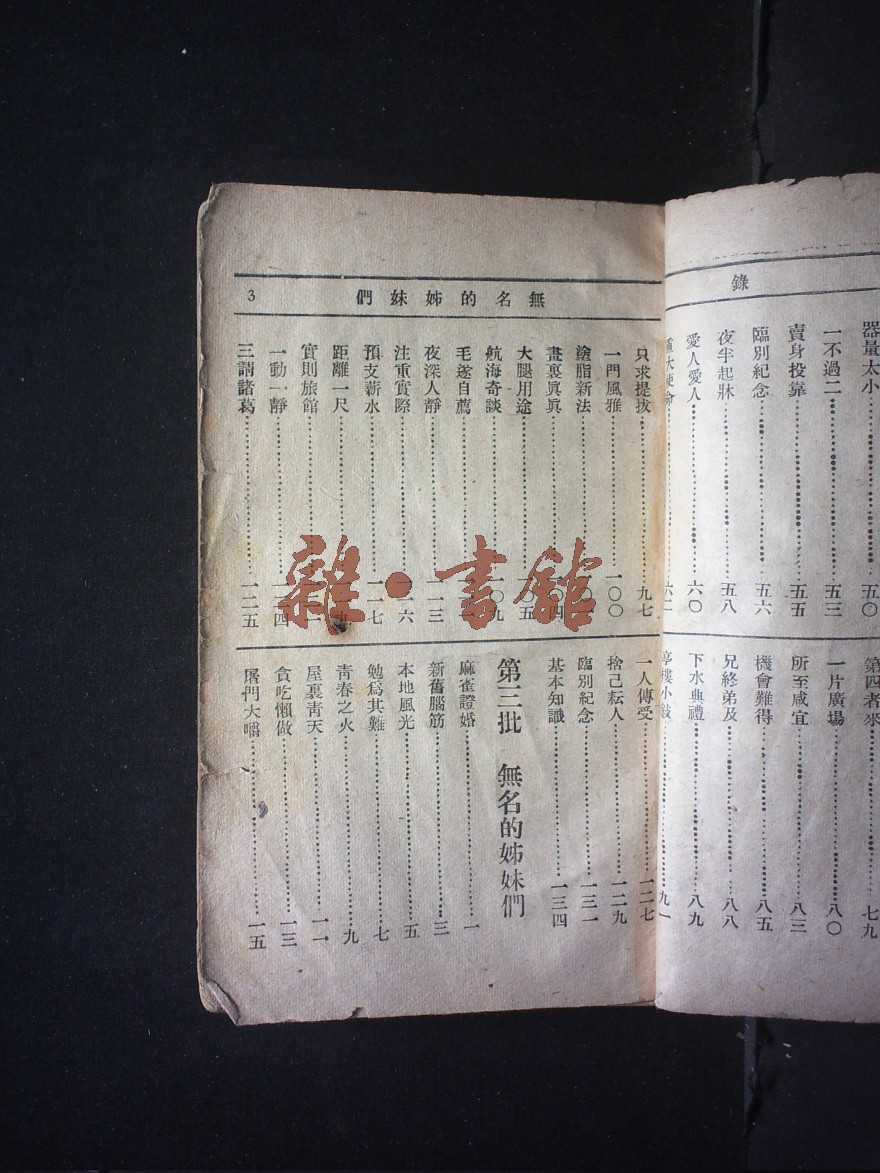 錄
器量太小……五〇
一不過二……五三
賣身投靠……五五
臨別紀念……五六
夜半起牀……五八
愛人愛人……六〇
重大使命……六二
第四者來……七九
一片廣場……八〇
所至咸宜……八三
機會難得……八五
兄終弟及……八八
下水典禮……八九
亭樓小……九一
無名的姊妹們 3
只求提拔……九七
一門風雅……一〇〇
塗脂新法……
畫裏眞眞……〇四
大腿用途……〇五
航海奇談……一〇九
毛遂自薦……
夜深人靜……一一三
注重實際……一六
預支薪水……一一七
距離一尺……九
實則旅館……
一動一靜……四
三謂諸葛……一二五
一人傳受……一二七
捨己耘人……一二九
臨別紀念……一三一
基本知識……一三四
第三批 無名的姊妹們
麻雀證婚……一
新舊腦筋……三
本地風光……五
勉爲其難……七
靑春之火……九
屋裏靑天……一一
貪吃懶做……一三
屠門大嚼……一五
雜·書館